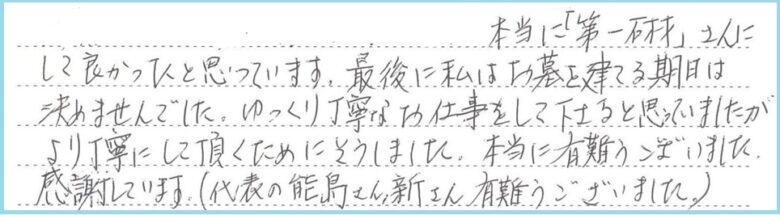 本当に「第一石材」さんに
して良かったと思っています。最後に私はお墓を建てる期日は
決めませんでした。ゆっくり丁寧なお仕事をして下さると思っていましたが
より丁寧にして頂くためにそうしました。本当に有難うございました。
感謝しています。(代表の能島さん、新さん有難うございました。)